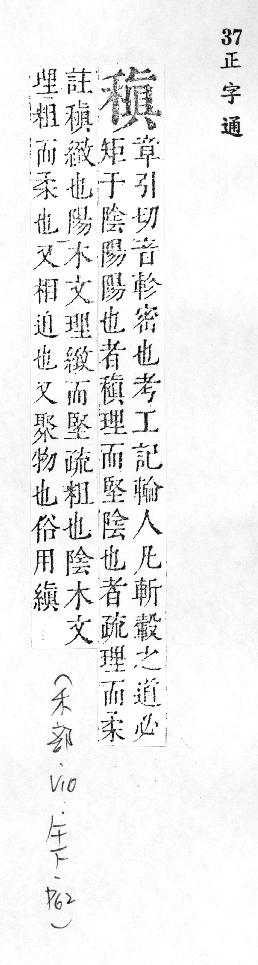 37 正字通
稹 章引切音軫密也考工記輪人凡斬轂之道必
矩于陰陽陽也者稹理而堅陰也者疏理而柔
註稹緻也陽木文理緻而堅疏粗也陰木文
理粗而柔也又相迫也又聚物也俗用縝
(禾部.V10.午下.P62)